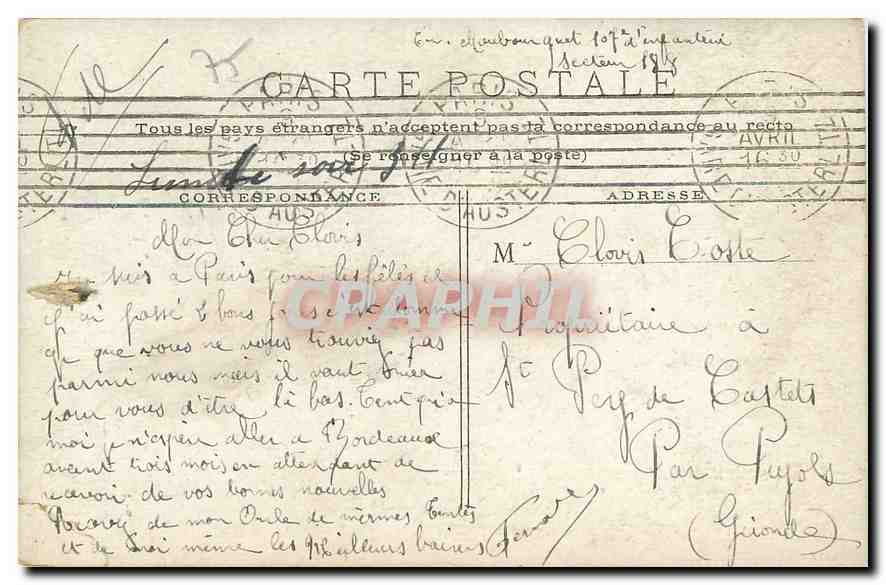 Env. Moubourguet 107e d'infanterie
Secteur
75
CARTE POSTALE
Tous les pays étrangers n'acceptent pas la correspondance au recto
(Se renseigner à la poste)
PARIS
AUSTERLITZ
AVRIL
16 30
Lundi soir
CORRESPONDANCE
ADRESSE
Mon Cher Clovis
suis a Paris pour les fêtes et
j'ai passé 2 bons jours c'est comme
ça que vous ne vous trouviez pas
parmi nous mais il vaut mieux
pour vous d'être là bas. Tant qu'a
moi je n'espère aller a Bordeaux
avant trois mois en attendant de
recevoir de vos bonnes nouvelles
Recevez de mon Oncle de mêmes Tantes
et de moi même les Meilleurs baisers
Fernand
M Clovis Coste
Propriétaire à
St Pey de Castets
Par Pujols
(Gironde)
CPAPHIL